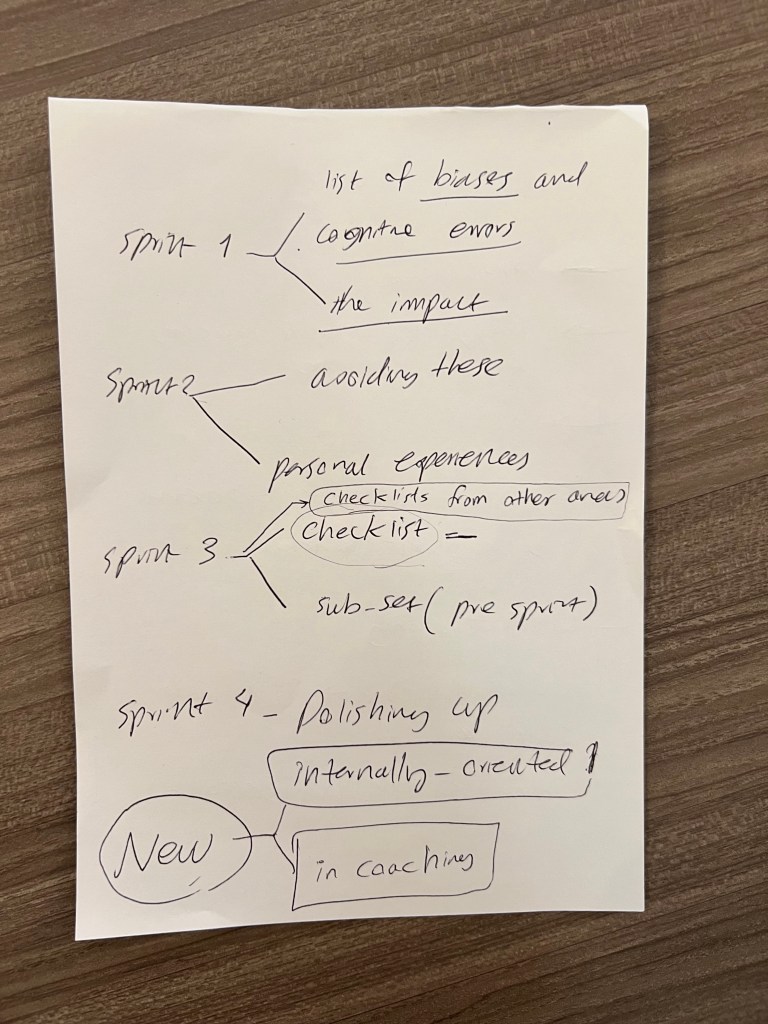 list of biases and
sprint 1 cognitive errors
the impact
Sprint 2 avoiding these
personal experiences
checklists from other areas
checklist
sprint 3
sub-set (pre sprint)
Sprint 4 - Polishing up
internally-oriented
New
in coaching